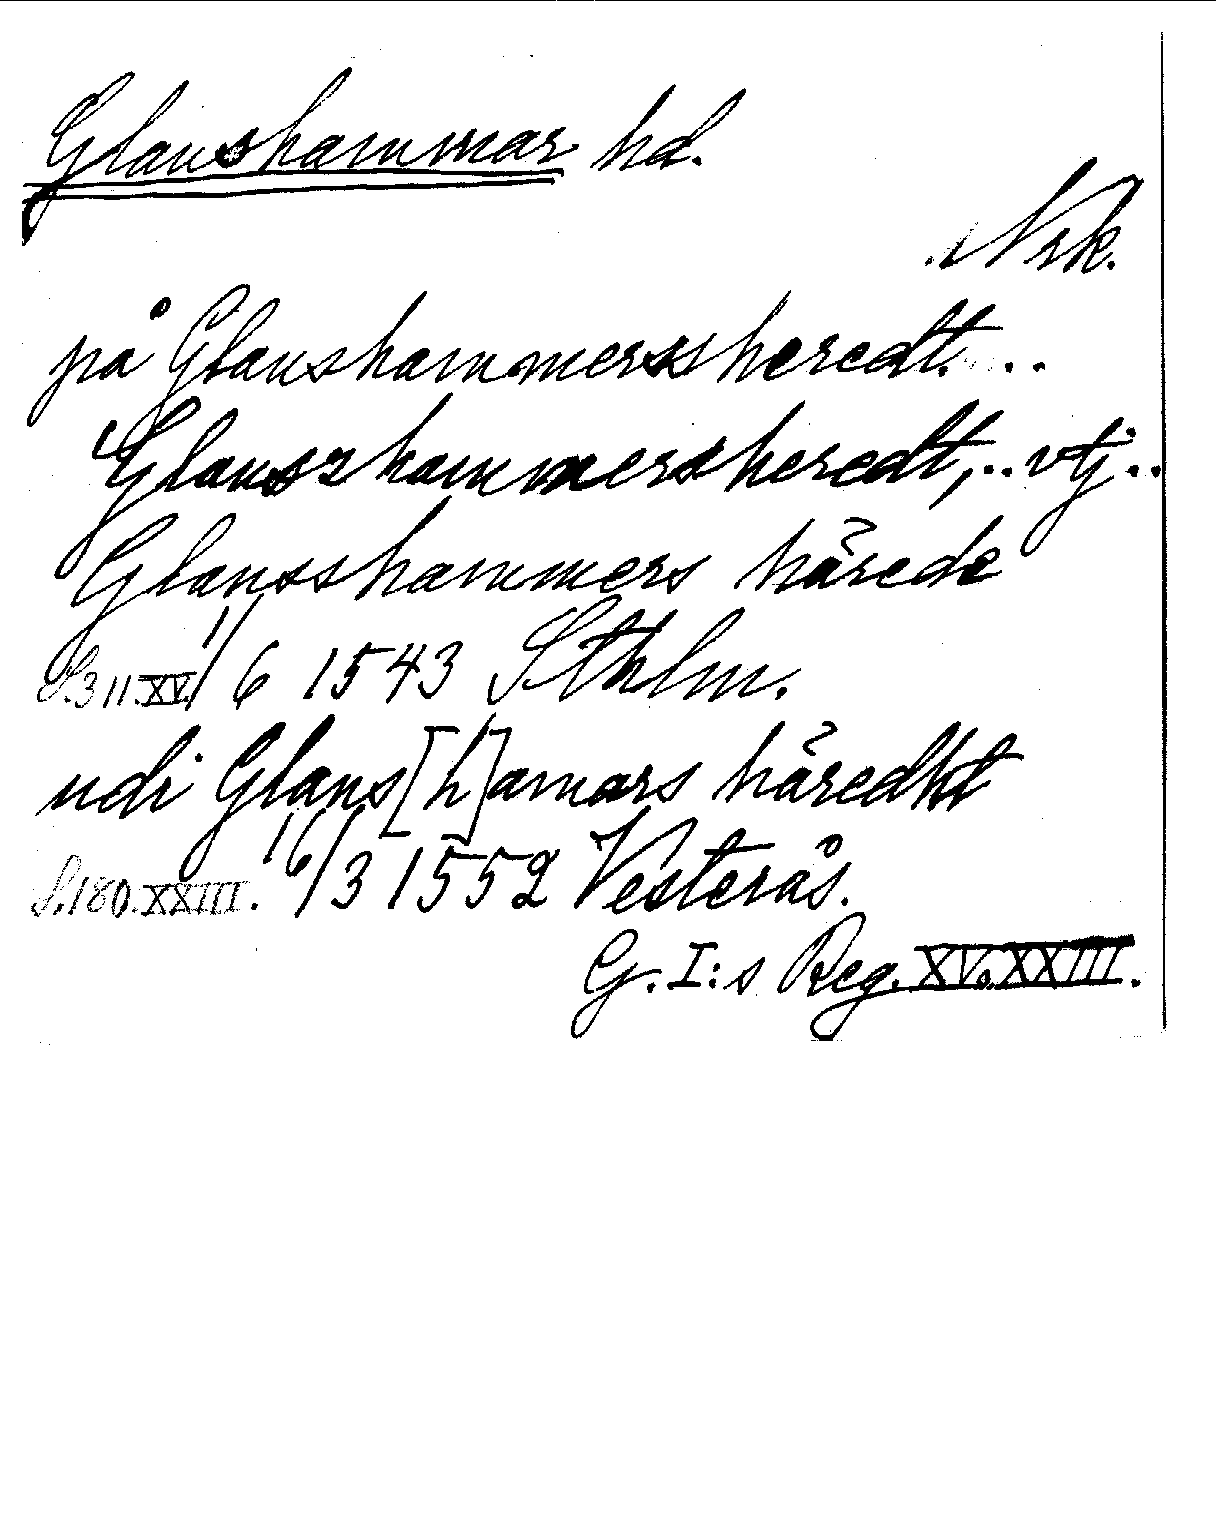 Glanshammar hd.
Nrk.
på Glanshammerssheredt. ...
Glanszhammersheredt, .. vtj ..
Glansshammers härede
S. 311. XV. 1/6 1543 Sthlm.
udi Glans[h]amars häredht
S. 180. XXIII. 16/3 1552 Vesterås.
G. I:s Reg. XV. XXIII.